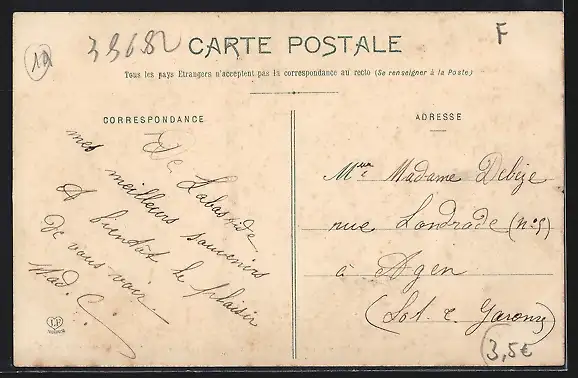 19
39682
F
CARTE POSTALE
Tous les pays Etrangers n'acceptent pas la correspondance au recto (Se renseigner à la Poste)
CORRESPONDANCE
De Labastide
mes meilleurs souvenirs
A bientôt le plaisir
de vous voir
Mad. C.
ADRESSE
Madame Debize
rue Londrade (n°5)
à Agen
(Lot. & Garonne)
3,5€